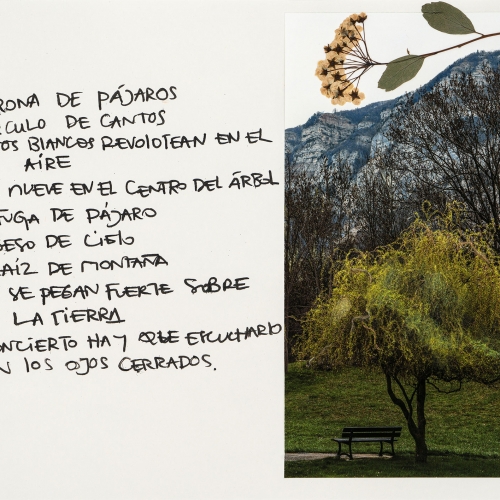 RONA DE PÁJAROS
CULO DE CANTOS
OS BLANCOS REVOLOTEAN EN EL
AIRE
NUEVE EN EL CENTRO DEL ÁRBOL
FUGA DE PÁJARO
DE CIELO
AÍZ DE MONTAÑA
SE PEGAN FUERTE SOBRE
LA TIERRA
ONCIERTO HAY QUE ESCUCHARLO
N LOS OJOS CERRADOS.